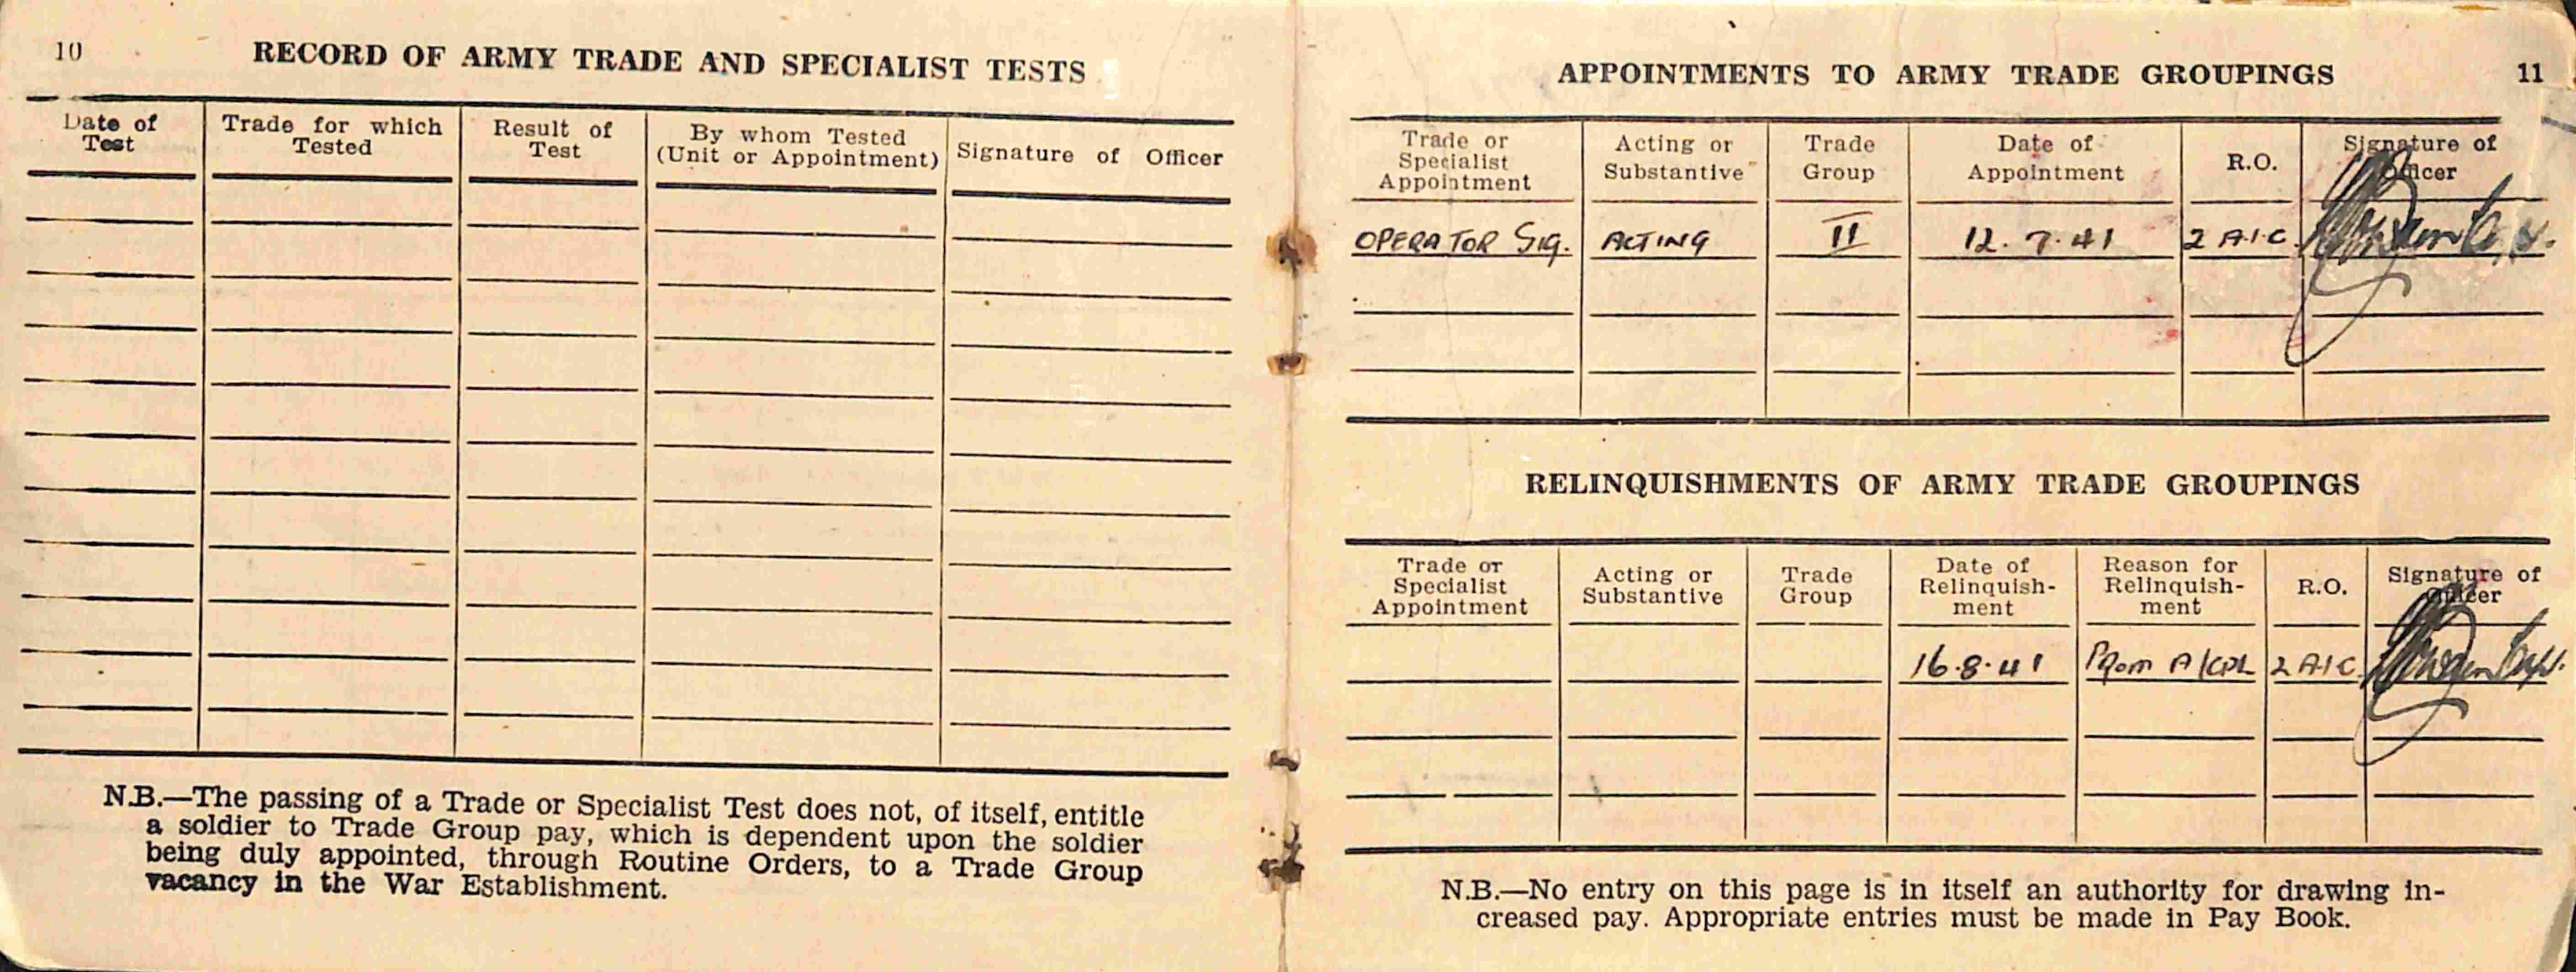 10
RECORD OF ARMY TRADE AND SPECIALIST TESTS
Date of Test
Trade for which Tested
Result of Test
By whom Tested (Unit or Appointment)
Signature of Officer
N.B.—The passing of a Trade or Specialist Test does not, of itself, entitle
a soldier to Trade Group pay, which is dependent upon the soldier
being duly appointed, through Routine Orders, to a Trade Group
vacancy in the War Establishment.
APPOINTMENTS TO ARMY TRADE GROUPINGS
11
Trade or Specialist Appointment
Acting or Substantive
Trade Group
Date of Appointment
R.O.
Signature of Officer
OPERATOR SIG. ACTING II 12.7.41 2 A.I.C.
RELINQUISHMENTS OF ARMY TRADE GROUPINGS
Trade or Specialist Appointment
Acting or Substantive
Trade Group
Date of Relinquish-ment
Reason for Relinquish-ment
R.O.
Signature of Officer
16.8.41 Prom A/CPL 2 A.I.C.
N.B.—No entry on this page is in itself an authority for drawing in-
creased pay. Appropriate entries must be made in Pay Book.